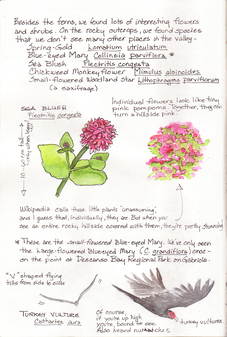 Besides the ferns, we found lots of interesting flowers
and shrubs. On the rocky outcrops, we found species
that we don't see many other places in the valley -
Spring-Gold Lomatium utriculatum
Blue-eyed Mary Collinsia parviflora *
Sea Blush Plectritis congesta
Chickweed Monkeyflower Mimulus alsinoides
Small-flowered Woodland Star Lithophragma parviflorum
(a saxifrage)
SEA BLUSH
Plectritis congesta
Individual flowers look like tiny
pink pom poms. Together, they can
turn a hillside pink.
Wikipedia calls these little plants "unassuming",
and I guess that, individually, they are. But when you
see an entire rocky hillside covered with them, they're pretty stunning!
* These are the small-flowered Blue-eyed Mary. We've only seen
the large-flowered Blue-eyed Mary (C. grandiflora) once -
on the point at Descanso Bay Regional Park on Gabriola.
"V" shaped flying
tilts from side to side
TURKEY VULTURE
Cathartes aura
Of course,
if you're up high,
you're bound to see
turkey vultures.
Also heard nuthatches